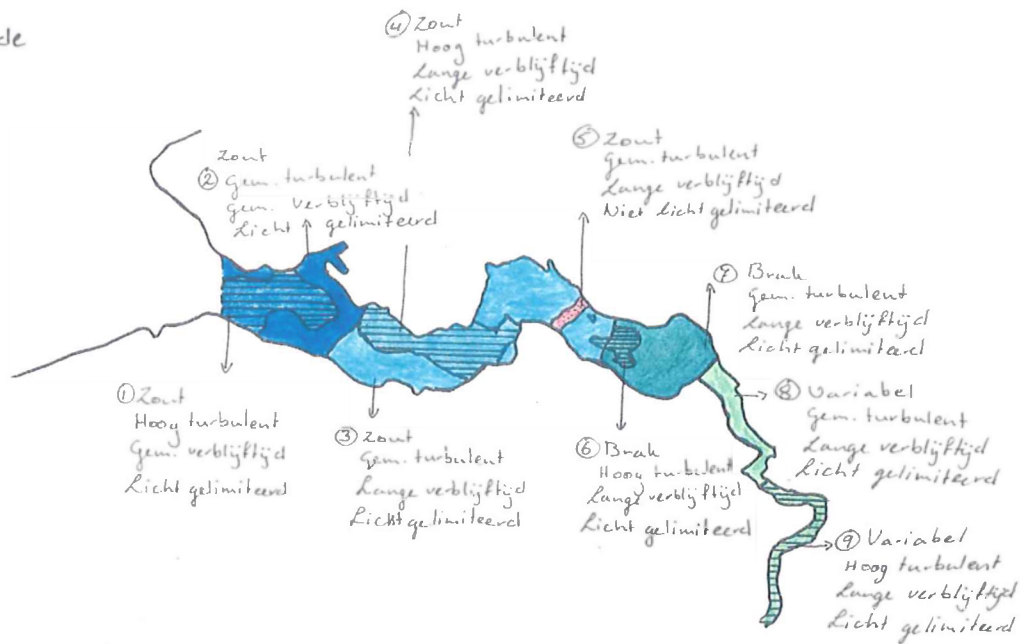 de
④ Zout
Hoog turbulent
Lange verblijftijd
Licht gelimiteerd
Zout
② Gem. turbulent
gem. verblijftijd
Licht gelimiteerd
⑤ Zout
Gem. turbulent
Lange verblijftijd
Niet licht gelimiteerd
⑦ Brak
Gem. turbulent
Lange verblijftijd
Licht gelimiteerd
① Zout
Hoog turbulent
Gem. verblijftijd
Licht gelimiteerd
③ Zout
Gem. turbulent
Lange verblijftijd
Licht gelimiteerd
⑥ Brak
Hoog turbulent
Lange verblijftijd
Licht gelimiteerd
⑧ Variabel
Gem. turbulent
Lange verblijftijd
Licht gelimiteerd
⑨ Variabel
Hoog turbulent
Lange verblijftijd
Licht gelimiteerd